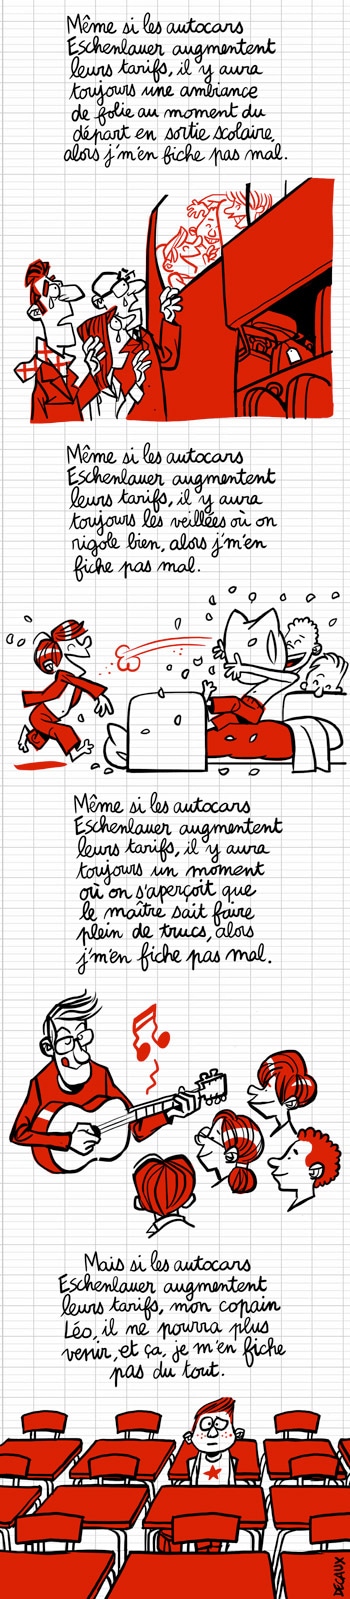 Même si les autocars
Eschenlauer augmentent
leurs tarifs, il y aura
toujours une ambiance
de folie au moment du
départ en sortie scolaire,
alors j'm'en fiche pas mal.
Même si les autocars
Eschenlauer augmentent
leurs tarifs, il y aura
toujours les veillées où on
rigole bien, alors j'm'en
fiche pas mal.
Même si les autocars
Eschenlauer augmentent
leurs tarifs, il y aura
toujours un moment
où on s'aperçoit que
le maître sait faire
plein de trucs, alors
j'm'en fiche pas mal.
Mais si les autocars
Eschenlauer augmentent
leurs tarifs, mon copain
Léo, il ne pourra plus
venir, et ça, je m'en fiche
pas du tout.
DECAUX